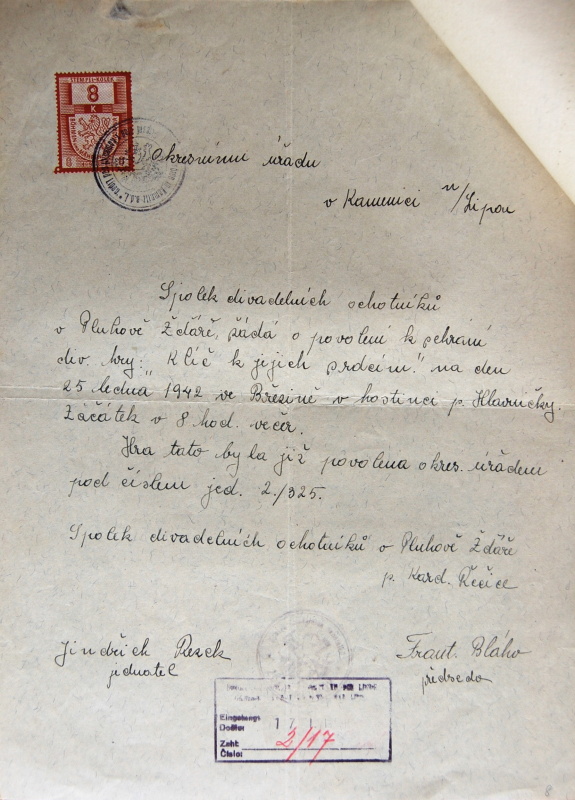 STEMPEL-KOLEK
8
K
Okresnímu úřadu
v Kamenici n/Lipou
Spolek divadelních ochotníků
v Pluhově Žďáře, žádá o povolení k sehrání
div. hry: "Klíč k jejich srdcím." na den
25 ledna 1942 ve Březině v hostinci p. Hlavničky.
Začátek v 8 hod. večer.
Hra tato byla již povolena okres. úřadem
pod číslem jed. 2./325.
Spolek divadelních ochotníků v Pluhově Žďáře
p. Kard. Řečice
Jindřich Rezek
Frant. Bláho
jednatel
předseda
Eingelangt
Došlo:
17
Zahl:
Číslo:
2/17
8